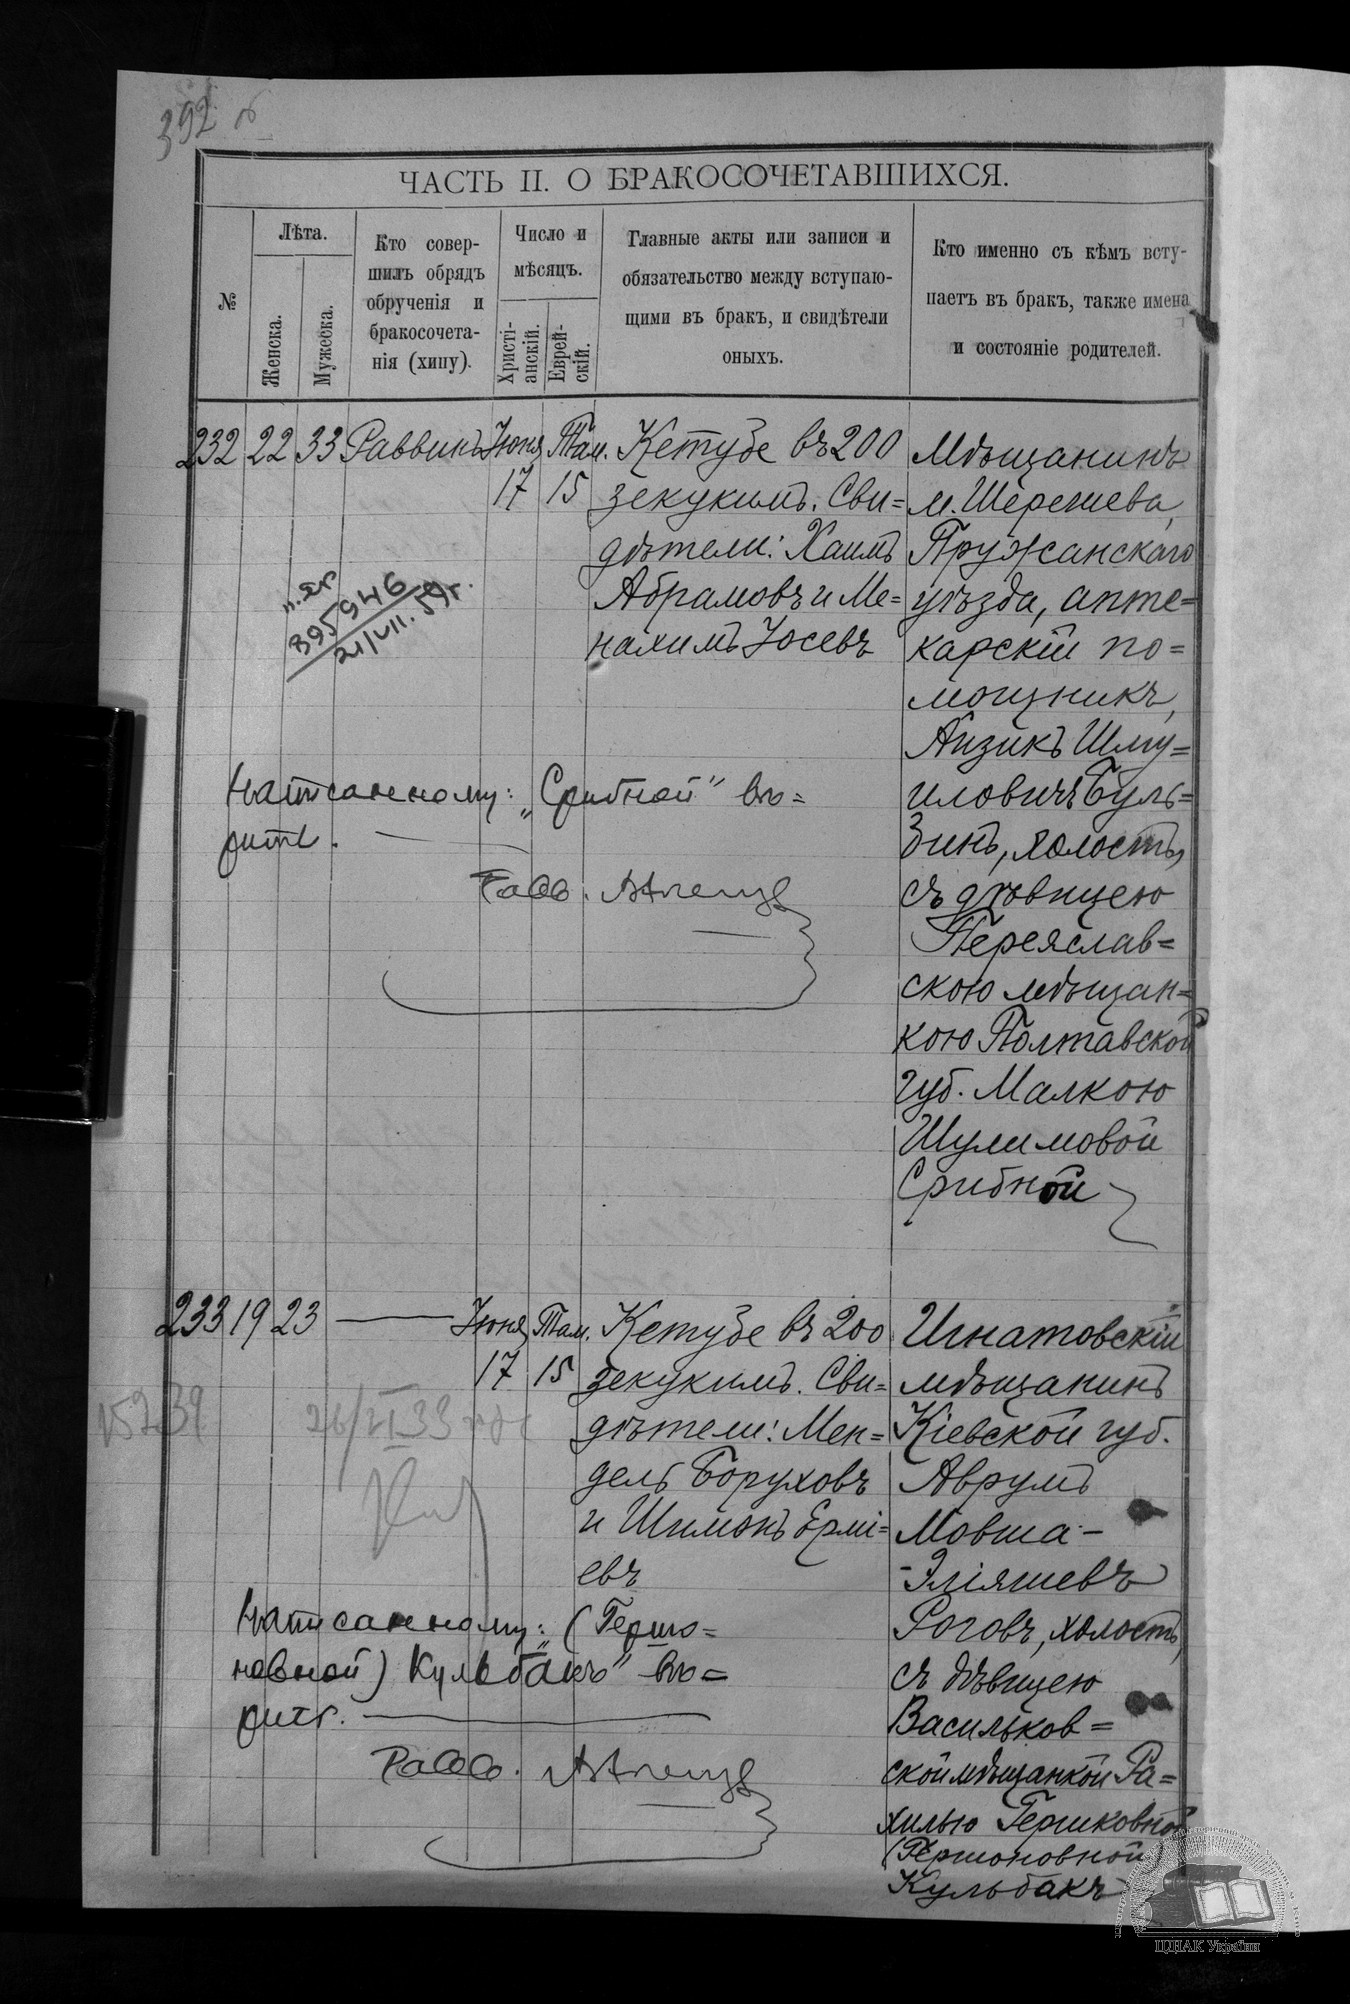 392
ЧАСТЬ II. О БРАКОСОЧЕТАВШИХСЯ.
№
Лѣта.
Женска.
Мужеска.
Кто совер-
шилъ обрядъ
обрученія и
бракосочета-
нія (хипу).
Число и
мѣсяцъ.
Христі-
анскій.
Еврей-
скій.
Главные акты или записи и
обязательство между вступаю-
щими въ бракъ, и свидѣтели
оныхъ.
Кто именно съ кѣмъ всту-
паетъ въ бракъ, также имена
и состояніе родителей.
232 22 33 Раввинъ Іюня 17 Там. 15
Кетубе въ 200
зекукимъ. Сви=
дѣтели: Хаимъ
Абрамовъ и Ме=
нахимъ Іосевъ
Мѣщанинъ
м. Шерешева,
Пружанскаго
уѣзда, апте=
карскій по=
мощникъ,
Айзикъ Шму=
иловичъ Буль=
зинъ, холостъ,
съ дѣвицею
Переяслав=
скою мѣщан=
кою Полтавской
губ. Малкою
Шулимовой
Срибной
895946
21/VII. 59г.
Написанному: „Срибной" вѣ=
рить.
Равв.
233 19 23 — Іюня 17 Там. 15
Кетубе въ 200
зекукимъ. Сви=
дѣтели: Мен=
дель Боруховъ
и Шимонъ Ермі=
евъ
Игнатовскій
мѣщанинъ
Кіевской губ.
Аврумъ
Мовша-
-Эліяшевъ
Роговъ, холостъ,
съ дѣвицею
Васильков=
ской мѣщанкой Ра=
хилью Гершковной
(Гершоновной)
Кульбакъ
Написанному: „(Гершо=
новной) Кульбакъ" вѣ=
рить.
Равв.
ЦДІАК України